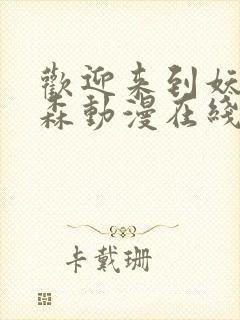 歡迎来到妖
森動漫在綫
卡戴珊